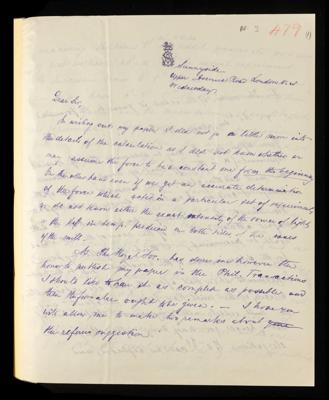 479
Sunnyside
Upper Avenue Road London N.W.
Wednesday.
Dear Sir,
In writing out my paper I did not go a little more into
the details of the calculation as I did not know whether we
may assume the force to be a constant one from the beginning
On the other hand even if we get an accurate determination
of the force which acted in a particular set of experiments
we do not know either the exact intensity of the source of light
or the loss in temp. produced on both sides of the vanes
of the mill.
As the Royal Soc. has done me however the
honor to publish my paper in the Phil. Transactions
I should like to have it as complete as possible and
then the formulae ought to be given. — I hope you
will allow me to make two remarks about
the referees suggestion